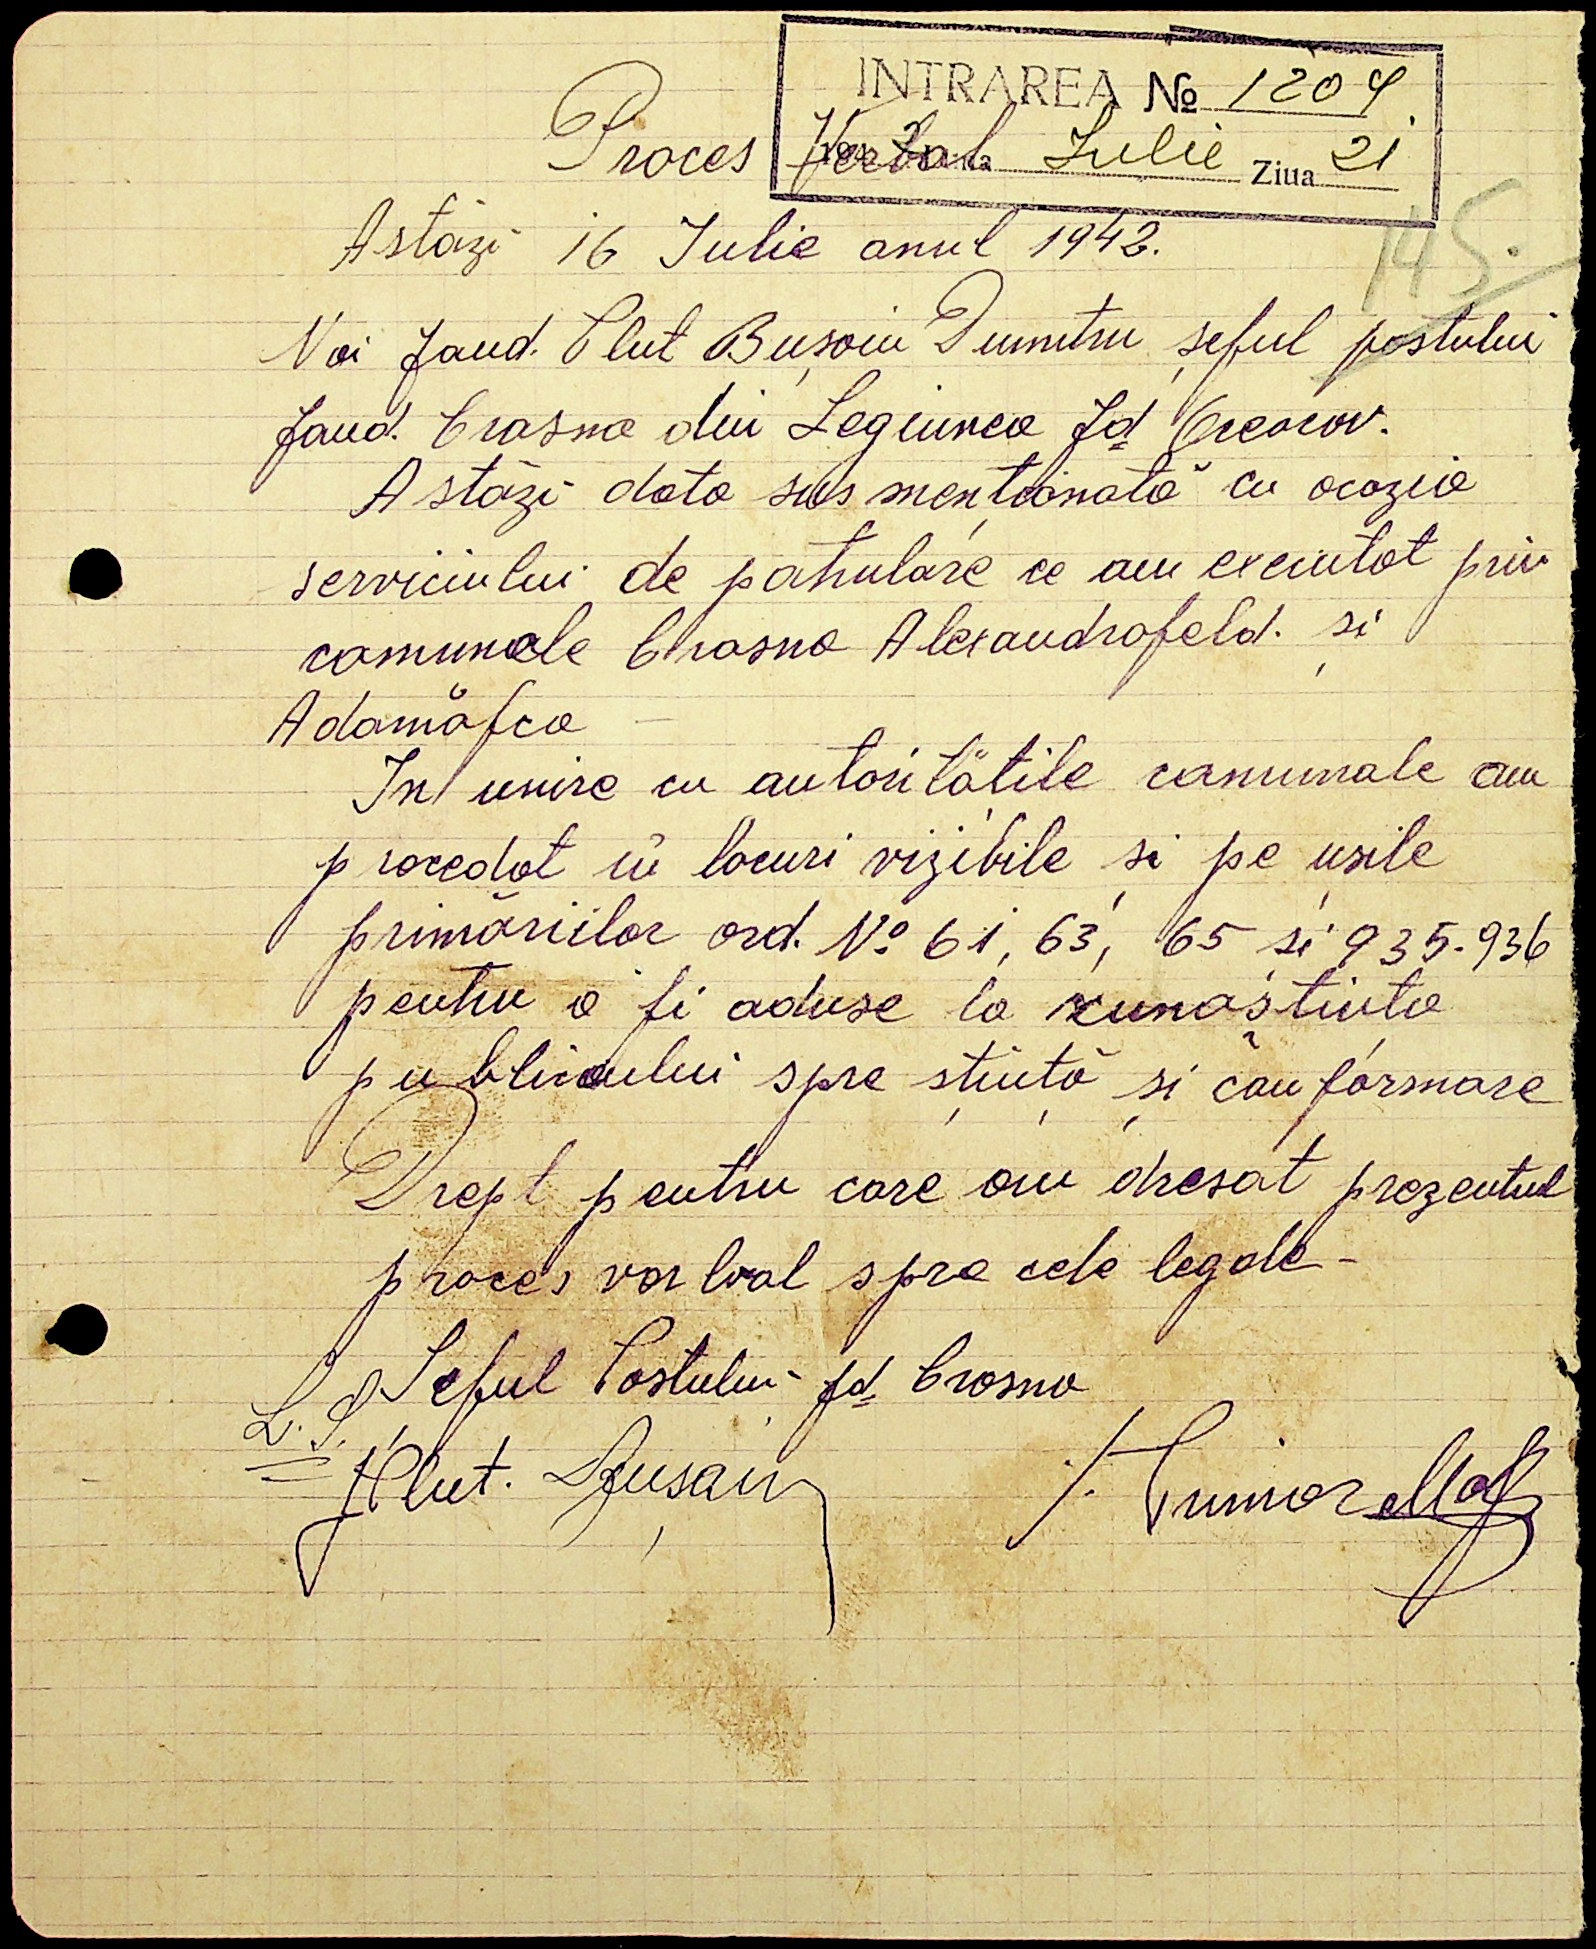 INTRAREA № 1209
194 2 Luna Iulie Ziua 21
Proces Verbal
145.
Astăzi 16 Iulie anul 1942.
Noi Jand. Plut Bușoiu Dumitru șeful postului
Jand. Crasna din Legiunea Jd
Astăzi data sus menționată cu ocazia
serviciului de patrulare ce am executat prin
comunele Crasna Alexandrofeld. și
Adamăfca
In unire cu autoritățile comunale am
procedat în locuri vizibile și pe ușile
primăriilor ord. No 61, 63, 65 și 935-936
pentru a fi aduse la cunoștința
publicului spre știință și conformare
Drept pentru care am dresat prezentul
proces verbal spre cele legale -
Șeful Postului Jd Crasna
L. S.
Plut. Bușoiu